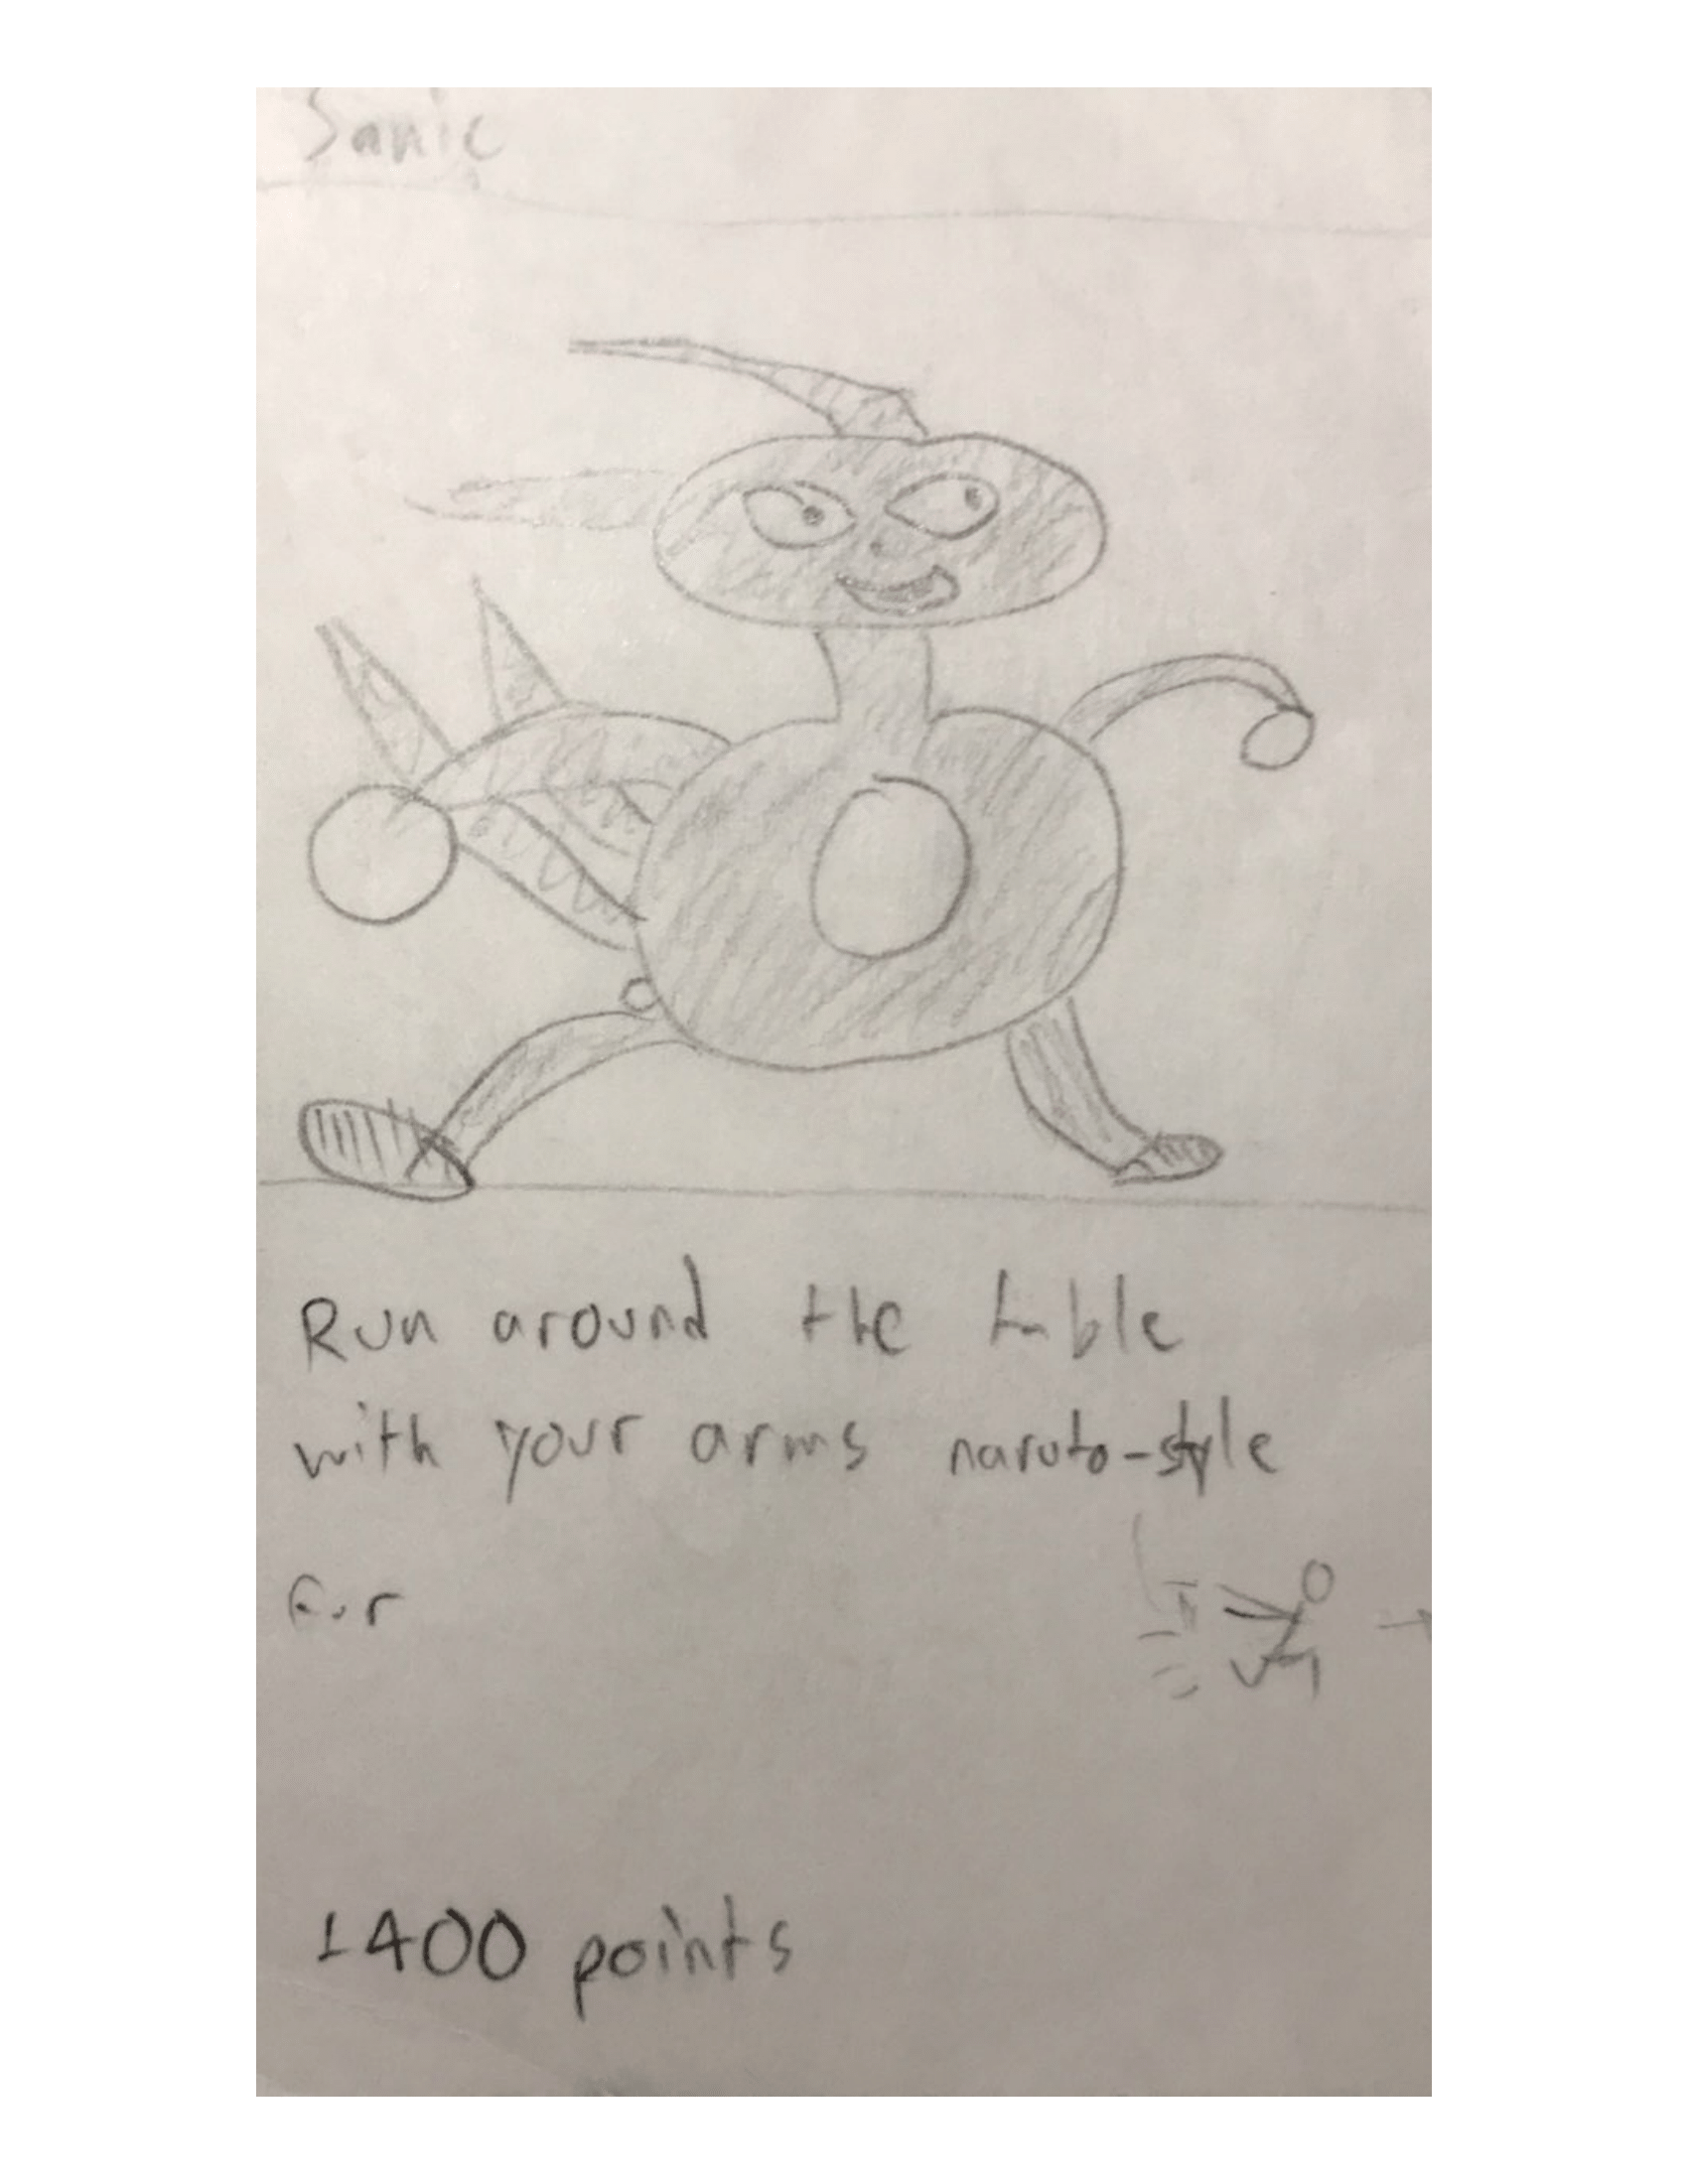 Sanic
Run around the table
with your arms naruto-style
for
1400 points